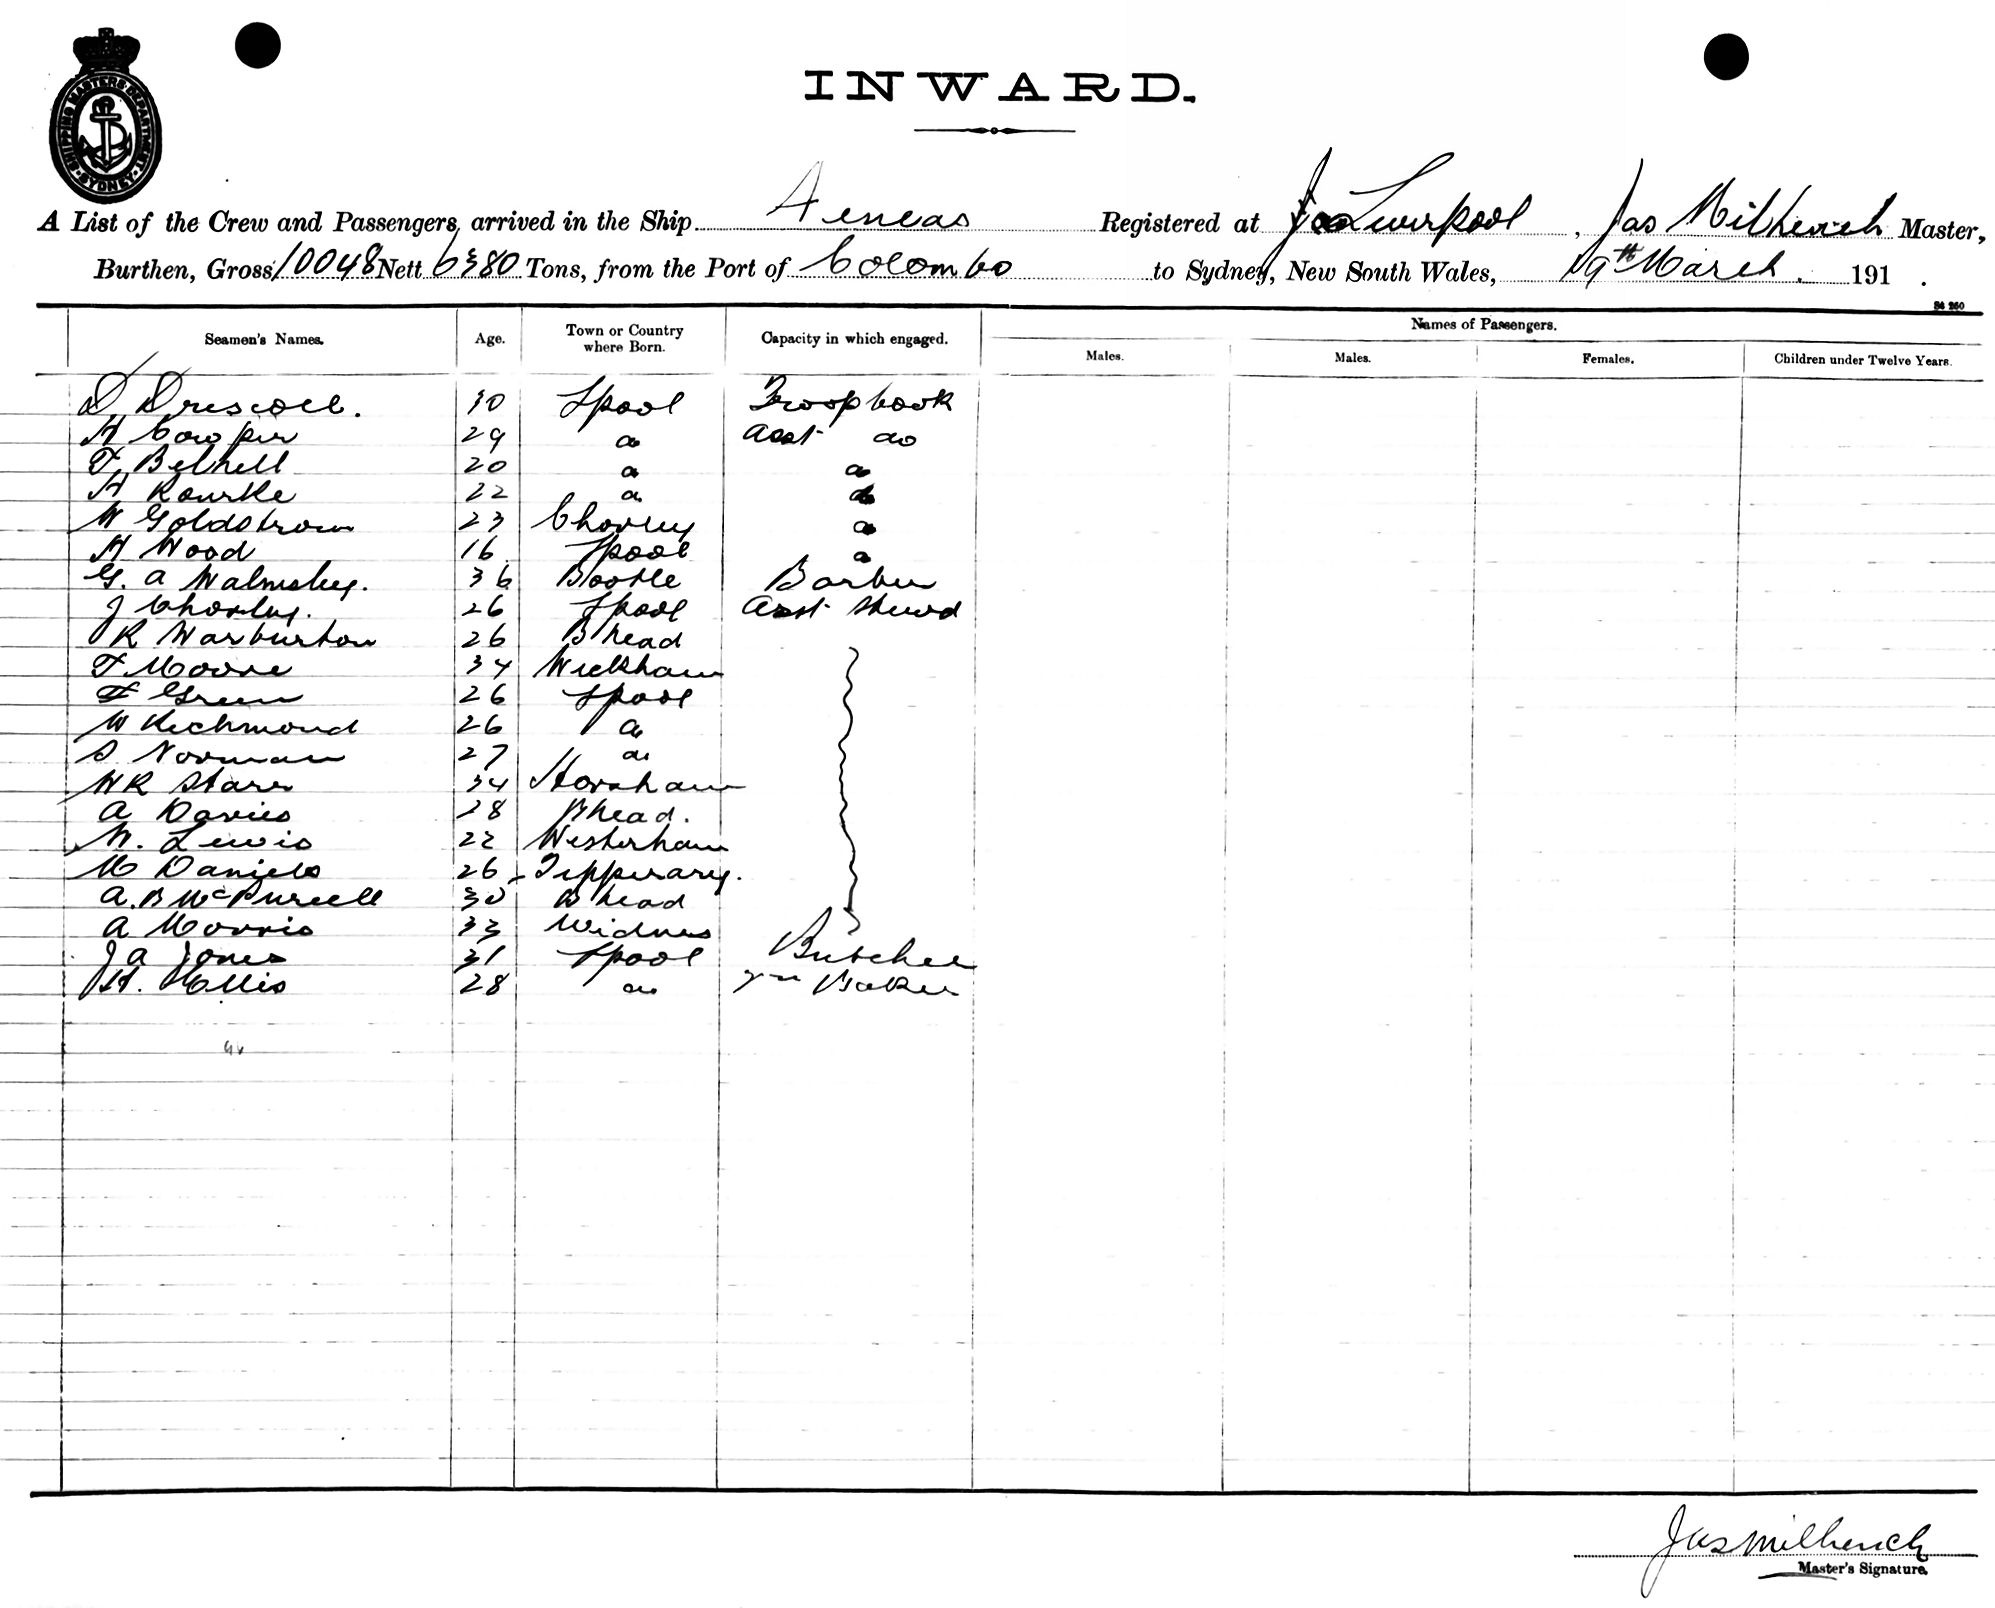 SHIPPING MASTERS DEPARTMENT SYDNEY
INWARD.
A List of the Crew and Passengers arrived in the Ship Aeneas Registered at Liverpool, Jas Milhench Master,
Burthen, Gross 10048 Nett 6380 Tons, from the Port of Colombo to Sydney, New South Wales, 19th March. 191 .
S4 260
Seamen's Names. Age. Town or Country where Born. Capacity in which engaged. Names of Passengers.
Males. Males. Females. Children under Twelve Years.
D Driscoll. 30 Lpool Troop Cook
H Cowper 29 do Asst do
F Belhell 20 do do
H Rourke 22 do do
W Goldstrom 23 Chorley do
H Wood 16 Lpool do
G. A Walmsley. 36 Bootle Barber
J Chorley. 26 Lpool Asst Stewd
R Warburton 26 Bhead
F Moore 34 Wickham
F Green 26 Lpool
W Richmond 26 do
S Norman 27 do
WR Starr 34 Horsham
A Davies 28 Bhead.
W. Lewis 22 Westerham
M Daniels 26 Tipperary.
A. B McPurcell 30 Bhead
A Morris 33 Widnes
J A Jones 31 Lpool Butcher
H. Ellis 28 do Baker
Jas Milhench
Master's Signature.